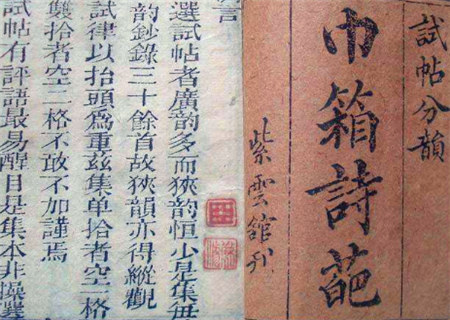 試帖分韻
巾箱詩葩
紫雲館刊
言
選試帖者廣韵多而狹韵恒少是集每
韵鈔錄三十餘首故狹韵亦得縱觀
試律以抬頭爲重兹集单抬者空一格
雙抬者空二格不敢不加謹焉
試帖有評語最易醒目是集本非操